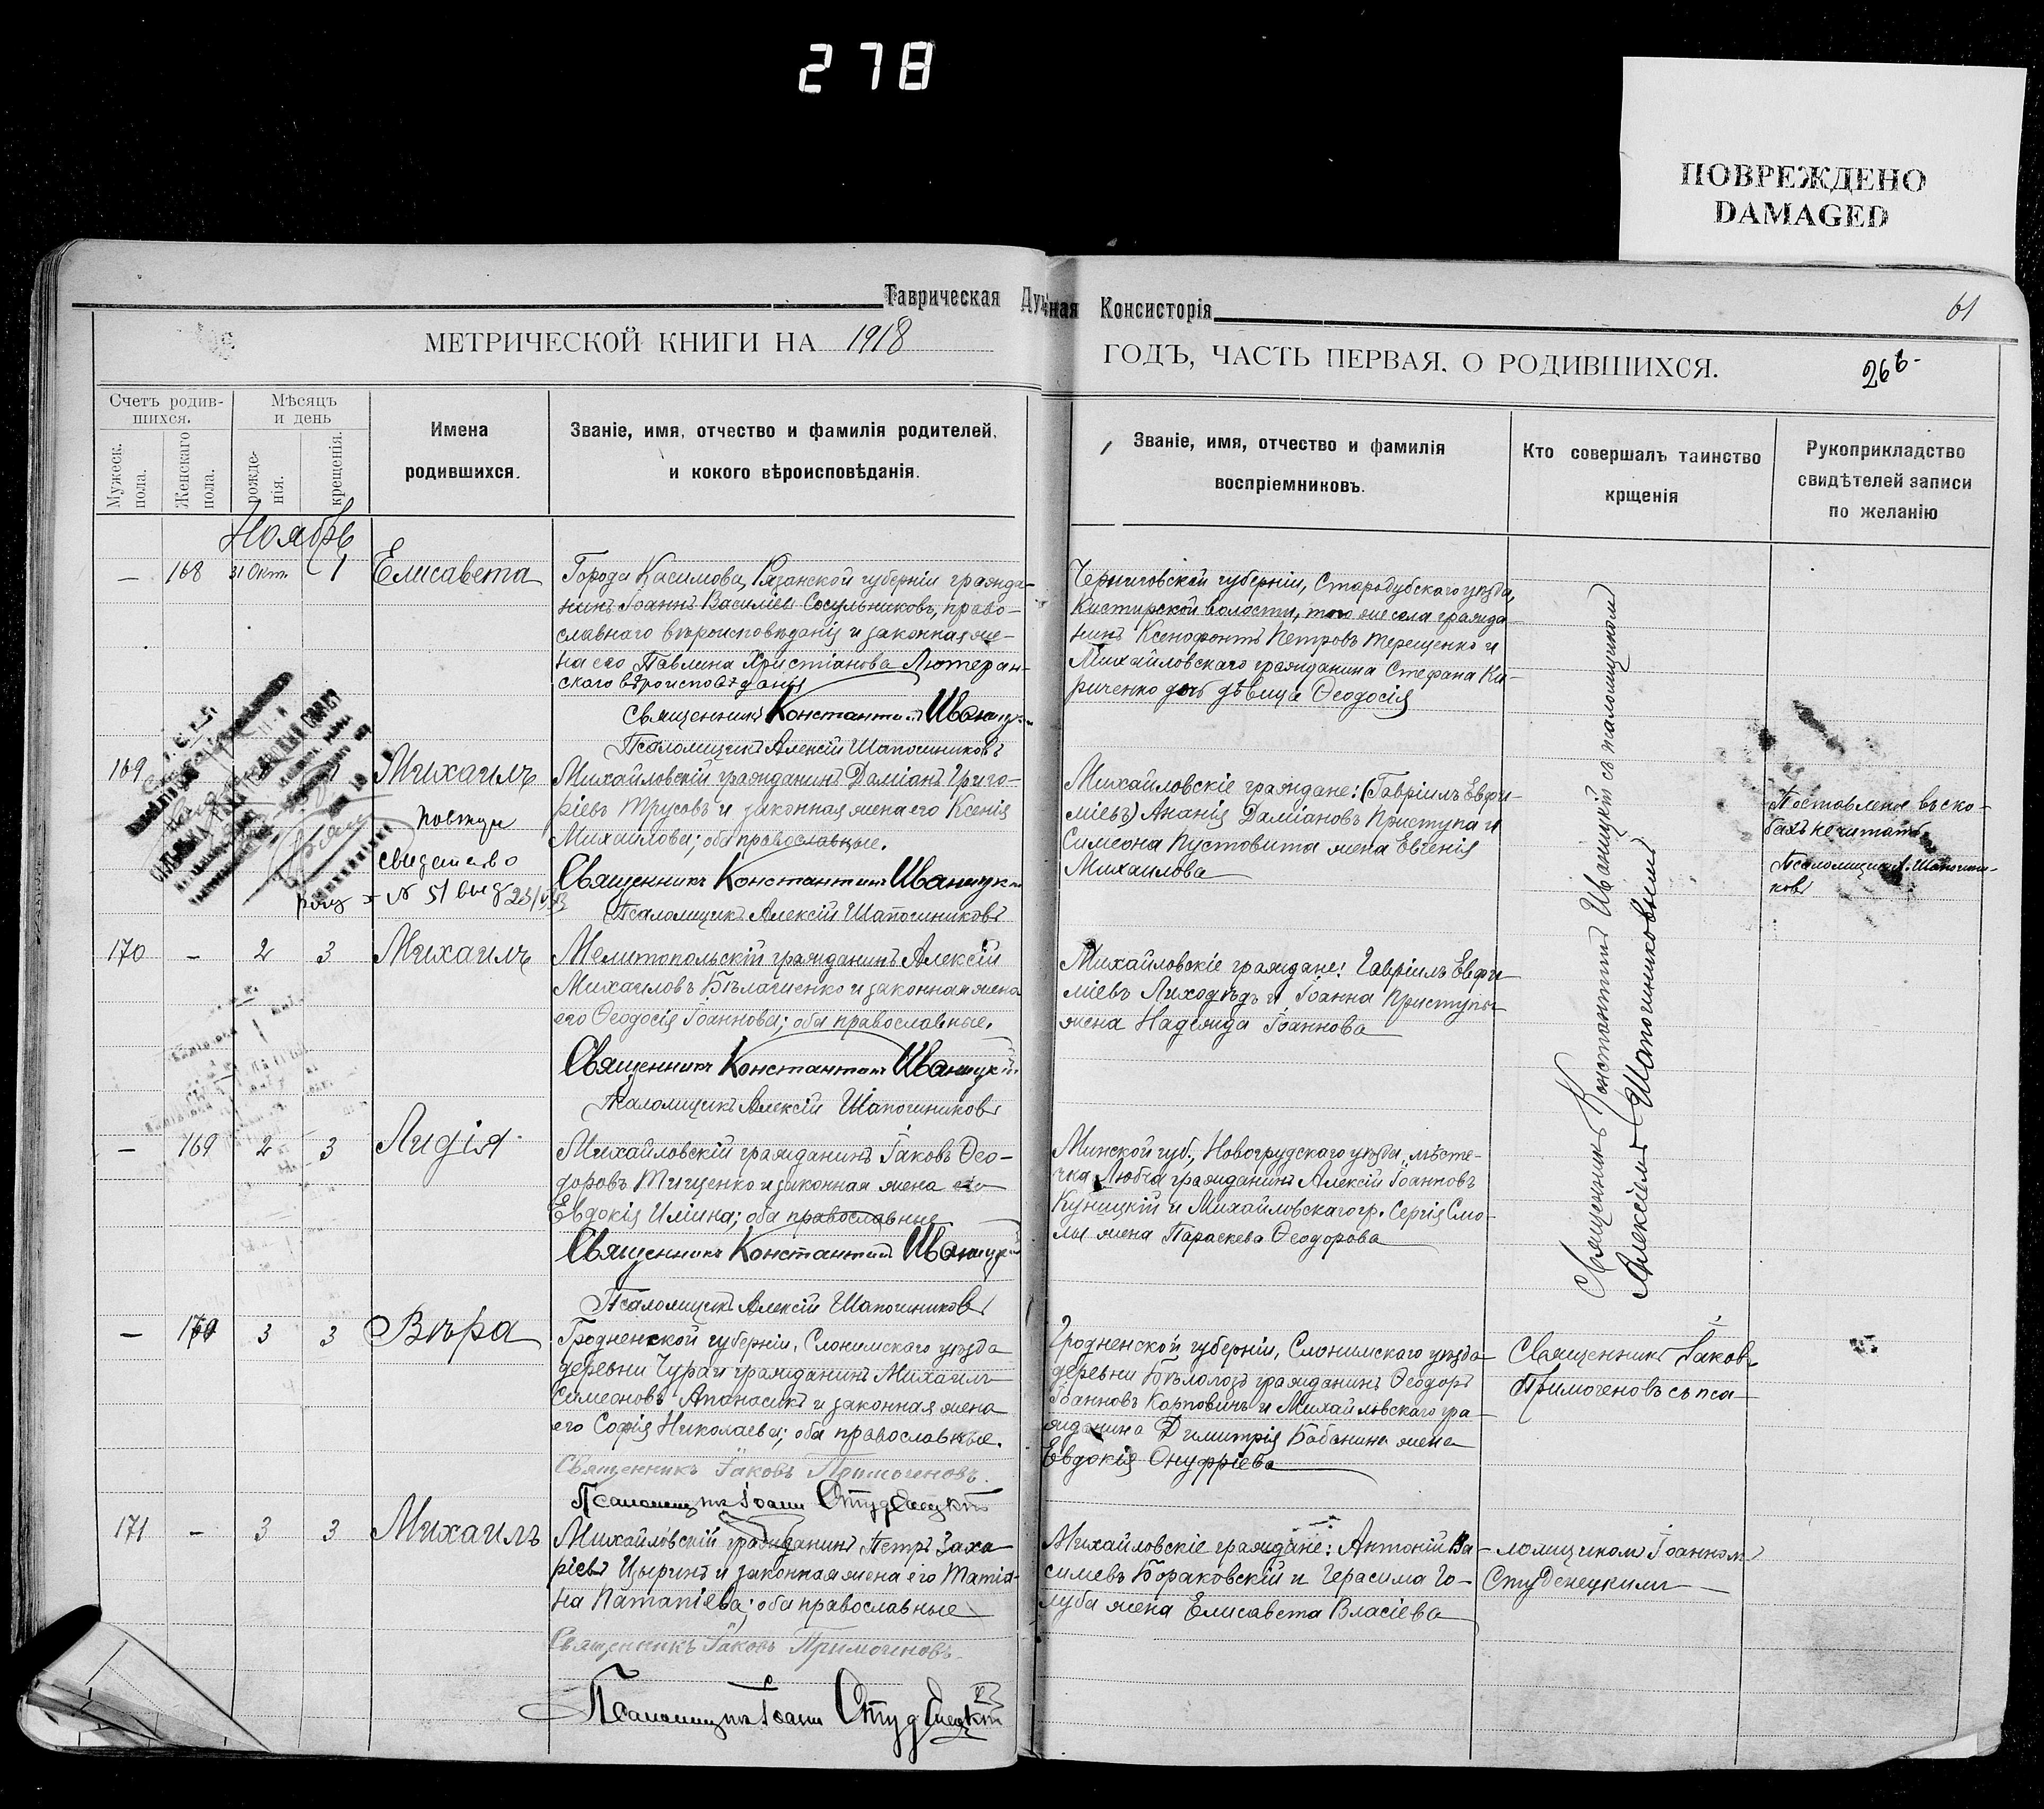 278
ПОВРЕЖДЕНО
DAMAGED
Таврическая Духная Консисторія
61
МЕТРИЧЕСКОЙ КНИГИ НА 1918
ГОДЪ, ЧАСТЬ ПЕРВАЯ, О РОДИВШИХСЯ.
Счетъ родив-
шихся.
Мужеск.
пола.
Женскаго
пола.
Мѣсяцъ
и день
рожде-
нія.
крещенія.
Имена
родившихся.
Званіе, имя, отчество и фамилія родителей,
и кокого вѣроисповѣданія.
Званіе, имя, отчество и фамилія
воспріемниковъ.
Кто совершалъ таинство
крщенія
Рукоприкладство
свидѣтелей записи
по желанію
Ноябрь
— 168 31 Окт. 1 Елисавета
Города Касимова, Рязанской губерніи гражда-
нинъ Іоаннъ Василіев Сосульниковъ, право-
славнаго вѣроисповѣданія и законная же-
на его Павлина Христіанова Лютеран-
скаго вѣроисповѣданія
Священникъ Константин Иваницкій
Псаломщикъ Алексій Шапошниковъ
Черниговской губерніи, Стародубскаго уѣзда,
Кистирской волости, того же села гражда-
нинъ Ксенофонтъ Петровъ Терещенко и
Михайловскаго гражданина Стефана Ки-
риченко дочь дѣвица Ѳеодосія
169 Михаилъ
Михайловскій гражданинъ Даміанъ Григо-
ріевъ Трусовъ и законная жена его Ксенія
Михаилова; оба православные.
Священникъ Константин Иваницкій
Псаломщикъ Алексій Шапошниковъ
№ 51
Михайловскіе граждане: (Гавріилъ Евфи-
міевъ) Ананія Даміановъ Приступа и
Симеона Пустовита жена Евгенія
Михаилова
Поставленое въ ско-
бахъ не читать
Псаломщикъ А. Шапошни-
ковъ
170 — 2 3 Михаилъ
Мелитопольскій гражданинъ Алексій
Михаиловъ Бѣлашенко и законная жена
его Ѳеодосія Іоаннова; оба православные.
Священникъ Константин Иваницкій
Псаломщикъ Алексій Шапошниковъ
Михайловскіе граждане: Гавріилъ Евфи-
міевъ Лиходѣдъ и Іоанна Приступы
жена Надежда Іоаннова
— 169 2 3 Лидія
Михайловскій гражданинъ Іаковъ Ѳео-
доровъ Тищенко и законная жена его
Евдокія Иліина; оба православные
Священникъ Константин Иваницкій
Псаломщикъ Алексій Шапошниковъ
Минской губ., Новогрудскаго уѣзда, мѣсте-
чка Любча гражданинъ Алексій Іоанновъ
Куницкій и Михайловскаго гр. Сергія Смо-
лы жена Параскева Ѳеодорова
Священникъ Константин Иваницкій съ псаломщикомъ
Алексіемъ Шапошниковымъ
— 170 3 3 Вѣра
Гродненской губерніи, Слонимскаго уѣзда
деревни Чураи гражданинъ Михаилъ
Симеоновъ Апанасикъ и законная жена
его Софія Николаева; оба православные.
Священникъ Іаковъ Примогеновъ.
Псаломщикъ Іоаннъ Студенецкій
Гродненской губерніи, Слонимскаго уѣзда
деревни Бѣлолозъ гражданинъ Ѳеодоръ
Іоанновъ Карповичъ и Михайловскаго гра-
жданина Димитрія Бабанина жена
Евдокія Онуфріева
Священникъ Іаковъ
Примогеновъ съ пса-
171 — 3 3 Михаилъ
Михайловскій гражданинъ Петръ Заха-
ріевъ Цыринъ и законная жена его Татіа-
на Патапіева; оба православные
Священникъ Іаковъ Примогеновъ.
Псаломщикъ Іоаннъ Студенецкій
Михайловскіе граждане: Антоній Ва-
силіевъ Бораковскій и Герасима Го-
луба жена Елисавета Власіева
ломщикомъ Іоанномъ
Студенецкимъ